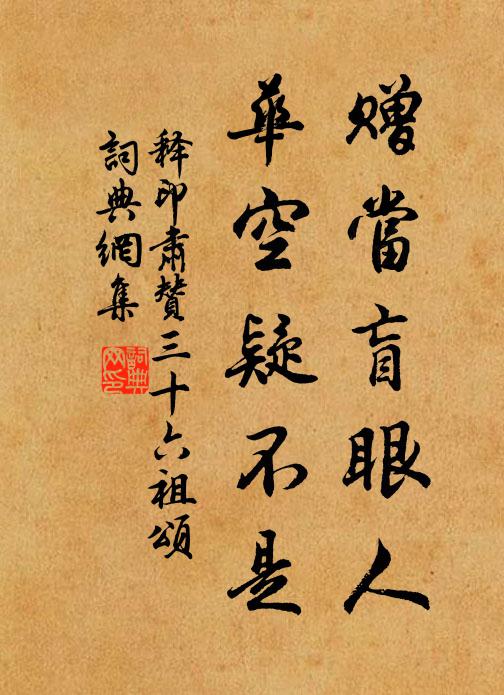 赠當盲眼人
華空疑不是
释印肅赞三十六祖頌
詞典網集
詞典网印